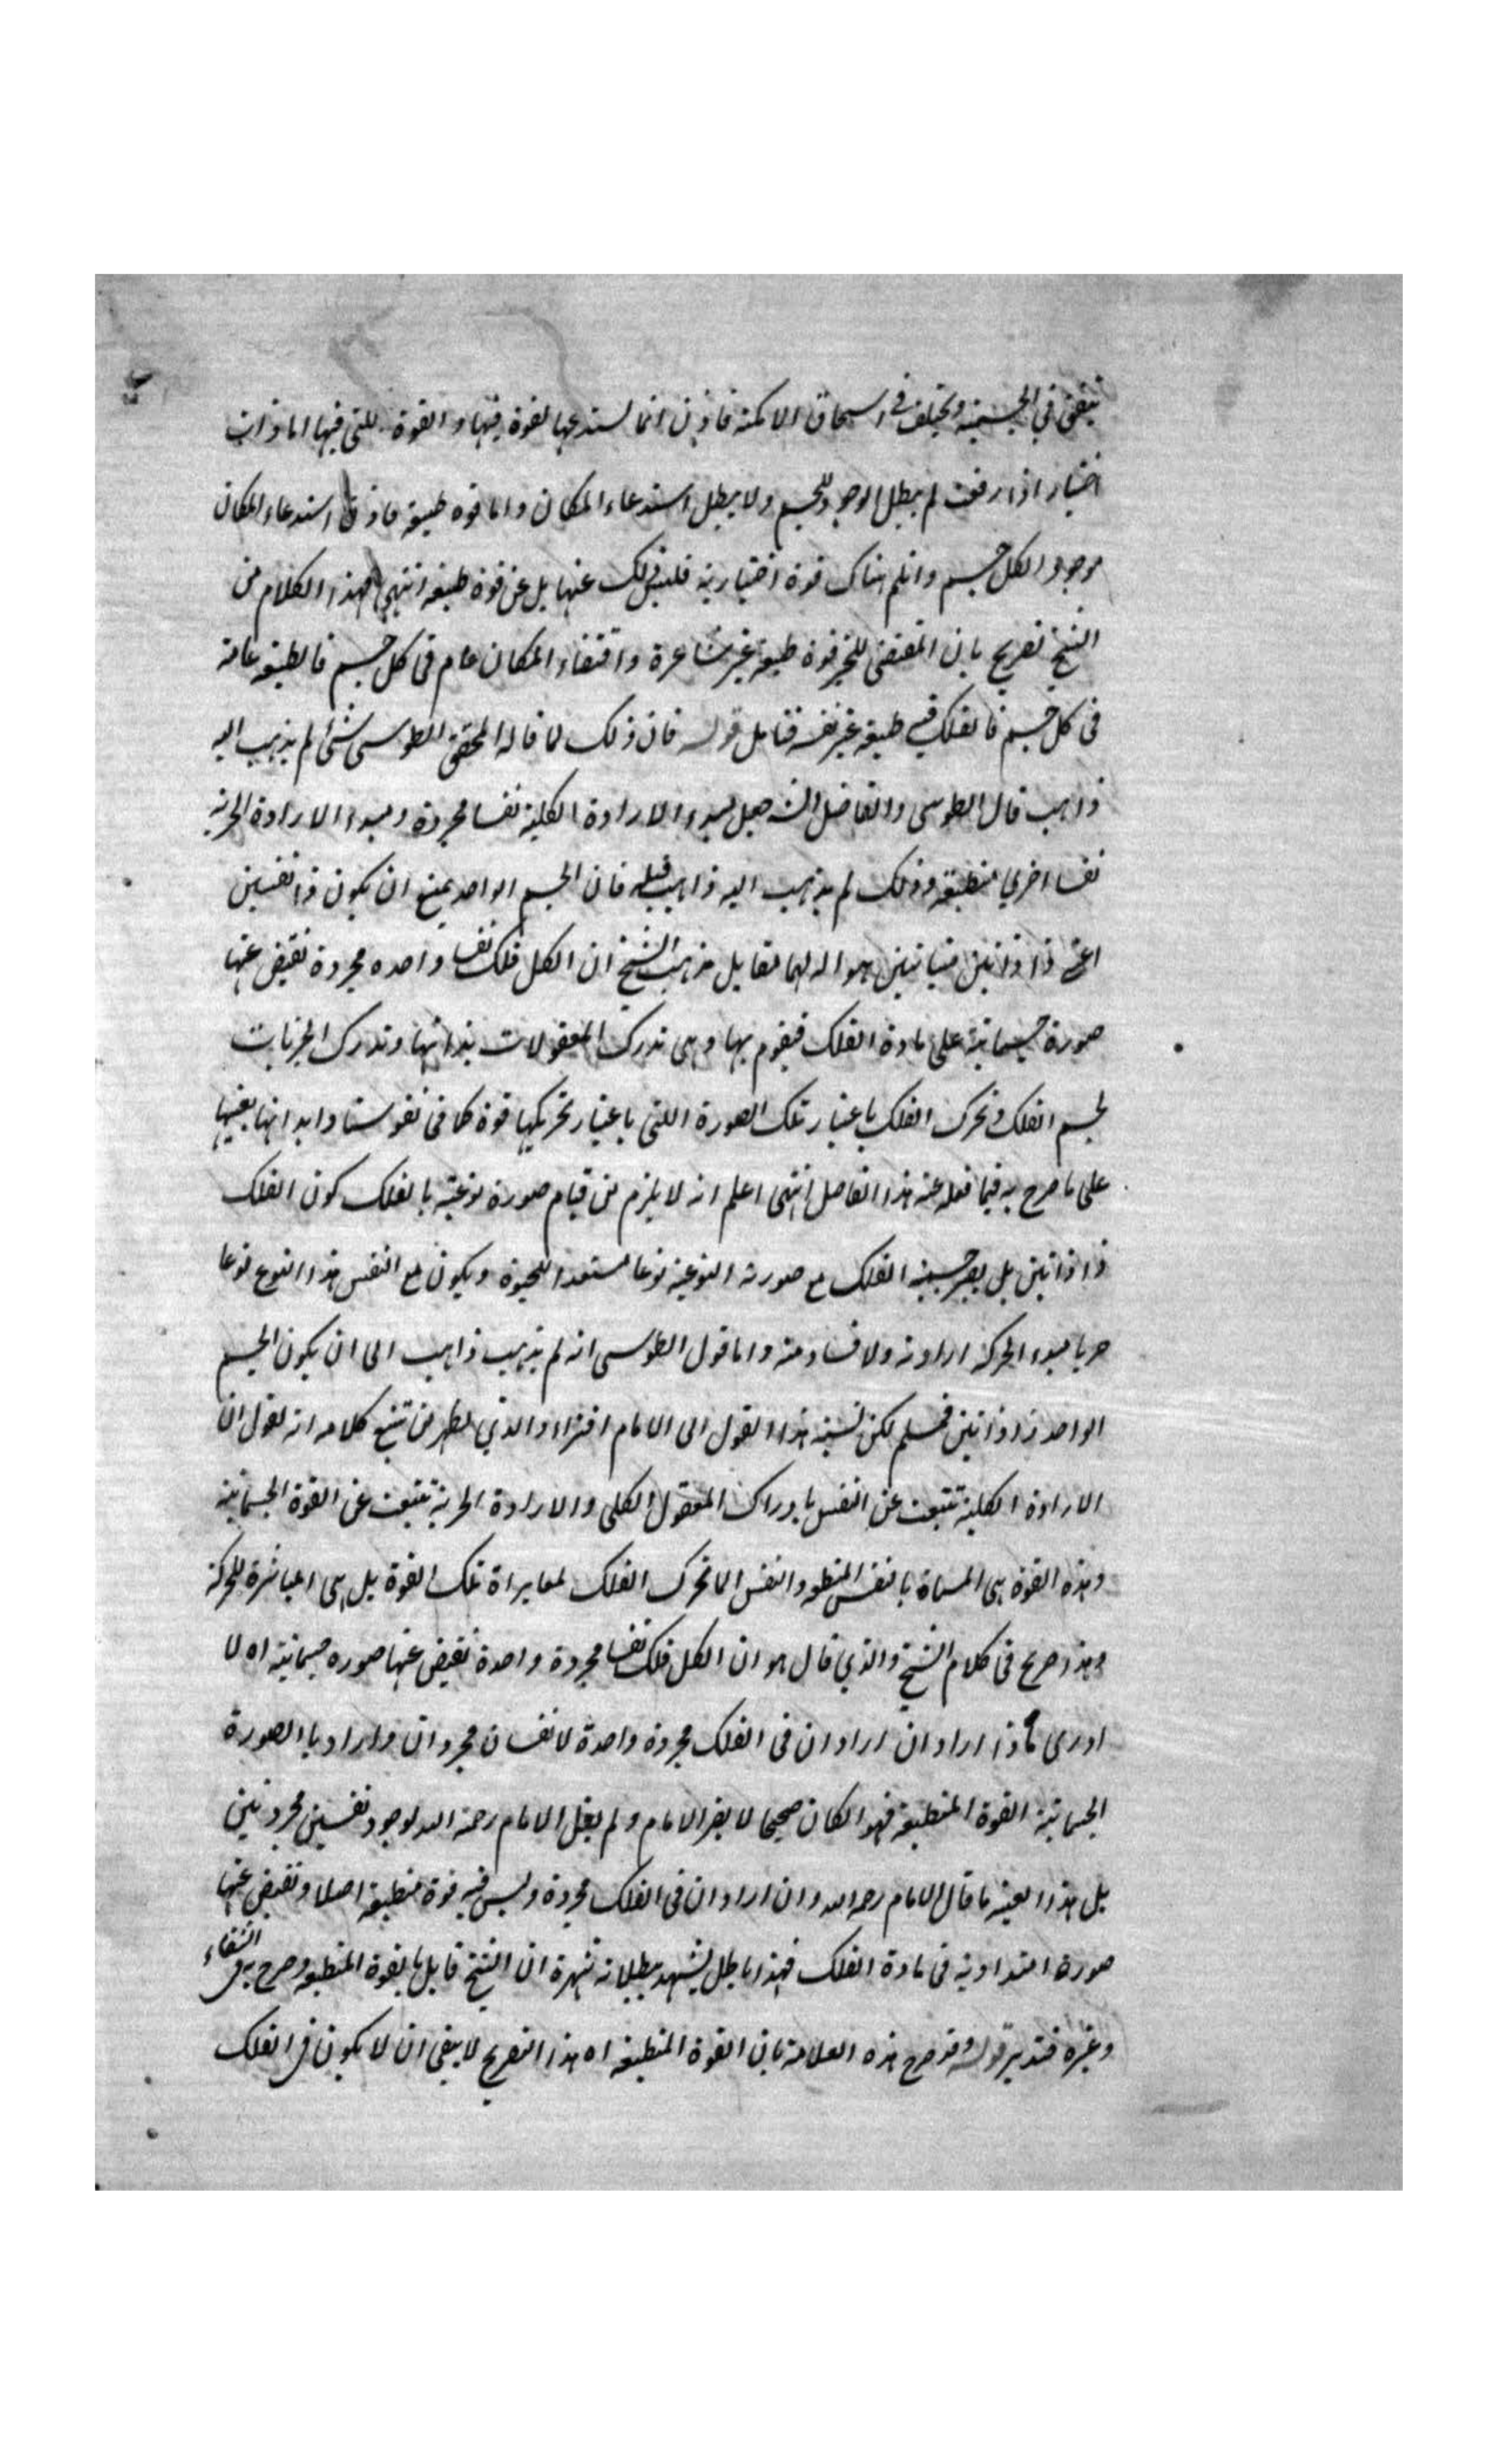 يتفق في الجسمية ويختلف في استحقاق الامكنة فاذن انما يستدعيها لقوة فيها والقوة اللتي فيها اما ذات
اختيار اذا رفعت لم يبطل الوجود للجسم ولا يبطل استدعاء المكان واما قوه طبيعة فاذن استدعاء المكان
موجود لكل جسم وان لم هناك قوة اختيارية فليس ذلك عنها بل عن قوة طبيعة انتهى فهذا الكلام من
الشيخ تصريح بان المقتضى للتحيز قوة طبيعة غير شاعرة واقتضاء المكان عام في كل جسم فالطبيعة عامة
في كل جسم فالفلك فيه طبيعة غير نفسه فتامل قوله فان ذلك لما قاله المحقق الطوسى شئ لم يذهب اليه
ذاهب قال الطوسى والفاضل الشه جعل مبدء الارادة الكلية نفسا مجردة ومبدء الارادة الجزئية
نفسا اخرى منطبعة وذلك لم يذهب اليه ذاهب قبله فان الجسم الواحد يمتنع ان يكون ذا نفسين
اعنى ذا ذاتين متباينتين هو اله لهما تقابل مذهب الشيخ ان لكل فلك نفسا واحده مجردة تفيض عنها
صورة جسمانية على مادة الفلك فيقوم بها وهى تدرك المعقولات بذاتها وتدرك الجزئيات
بجسم الفلك وتحرك الفلك باعتبار تلك الصورة اللتى باعتبار تحريكها قوة كما فى نفوسنا وابداننا بعينها
على ما صرح به فيما نقله عنه هذا الفاضل انتهى اعلم انه لا يلزم من قيام صورة نوعية بالفلك كون الفلك
ذا ذاتين بل يصير جسمية الفلك مع صورته النوعية نوعا مستعدا للحيوة ويكون مع النفس هذا النوع نوعا
حريا مبدء الحركة ارادته ولا فساد منه واما قول الطوسى انه لم يذهب ذاهب الى ان يكون الجسم
الواحد ذا ذاتين فمسلم لكن نسبة هذا القول الى الامام افتراء والذي يظهر من تتبع كلامه انه يقول ان
الارادة الكلية تنبعث عن النفس بادراك المعقول الكلى والارادة الجزئية تنبعث عن القوة الجسمانية
وهذه القوة هى المسماة بالنفس المنطبعة والنفس انما تحرك الفلك تلك القوة بل هى المباشرة للحركة
وهذا صريح فى كلام الشيخ والذي قال هو ان لكل فلك نفسا مجردة واحدة تفيض عنها صوره جسمانية اه لا
ادرى ماذا اراد ان اراد ان فى الفلك مجردة واحدة لا نفسان مجردان واراد بالصورة
الجسمانية القوة المنطبعة فهو الكان صحيحا لا يضر الامام ولم يقل الامام رحمة الله بوجود نفسين مجردتين
بل هذا بعينه ما قال الامام رحمه الله وان اراد ان فى الفلك مجردة وليس فيه قوة منطبعة اصلا وتفيض عنها
صورة امتدادية فى مادة الفلك فهذا باطل يشهد ببطلانه شهرة ان الشيخ قايل بالقوة المنطبعة وصرح به فى الشفاء
وغيره فتدبر قوله وقد صرح هذه العلامة بان القوة المنطبعة اه هذا التصريح لا ينفى ان لا يكون فى الفلك